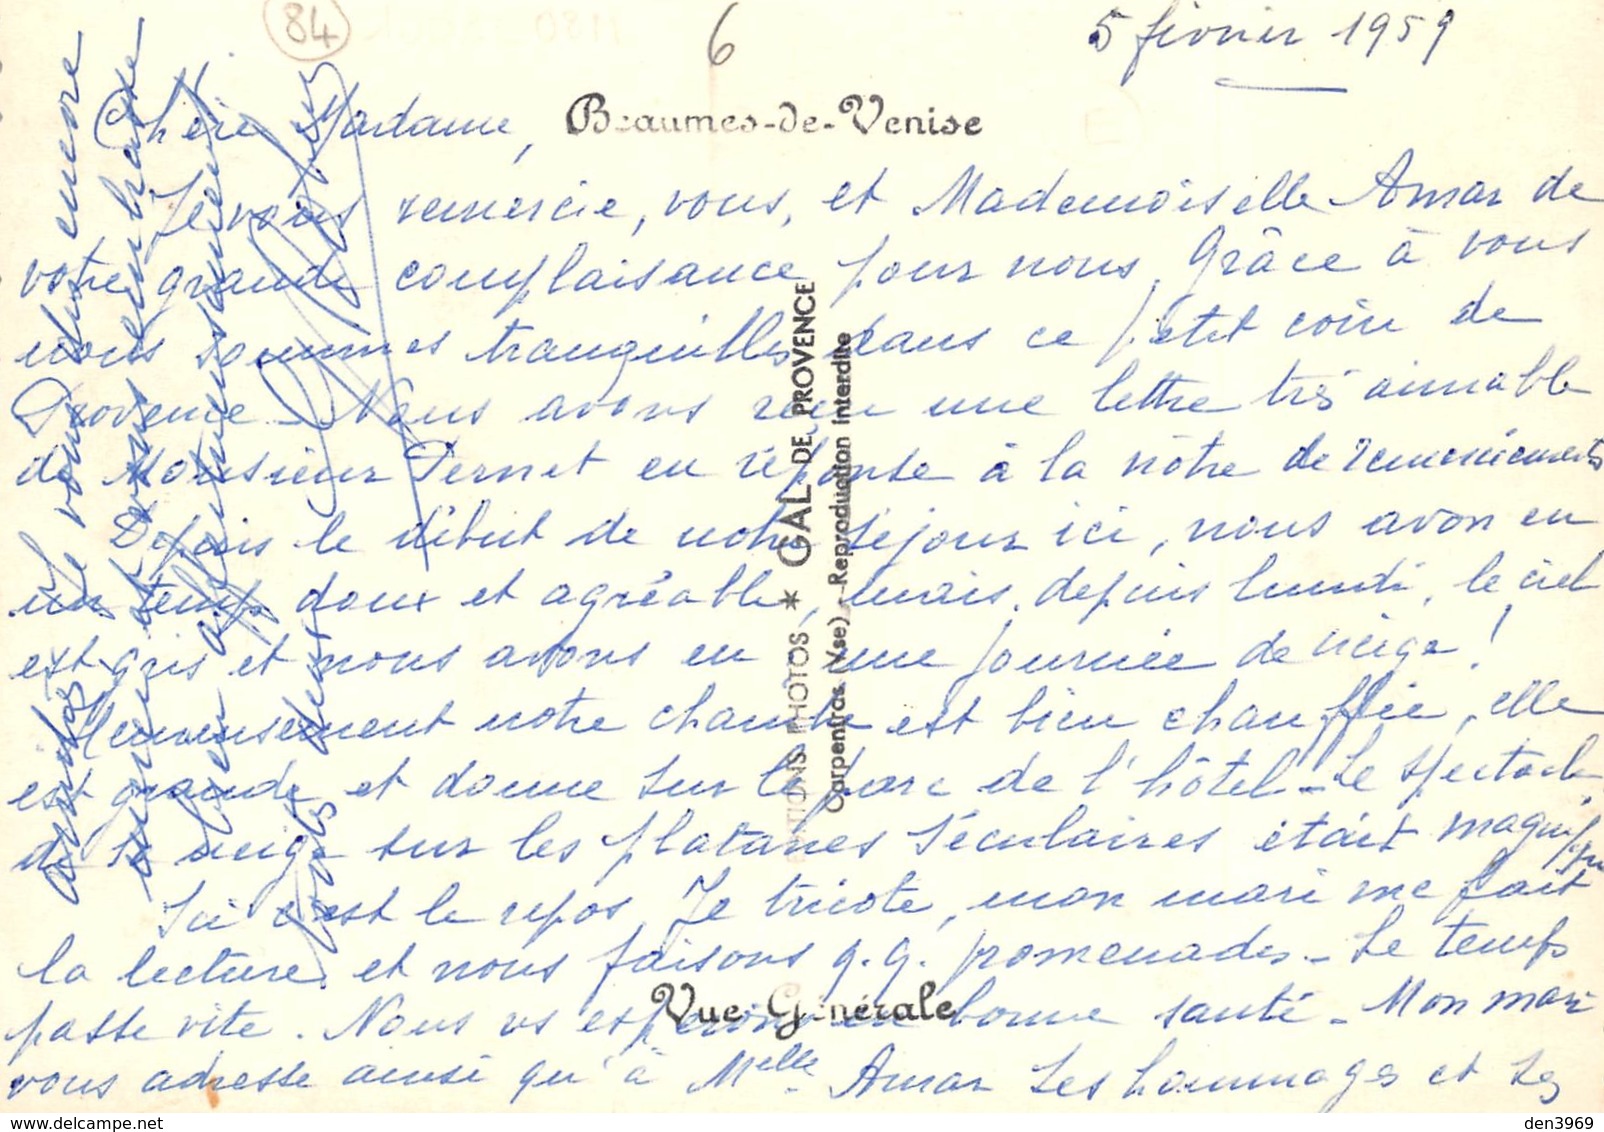 84
6
5 février 1959
Beaumes-de-Venise
Chère Madame,
Je vous remercie, vous, et Mademoiselle Amar de
votre grande complaisance pour nous. Grâce à vous
nous sommes tranquilles dans ce petit coin de
Provence - Nous avons reçu une lettre très aimable
de Monsieur Pernet en réponse à la nôtre de remerciements
Depuis le début de notre séjour ici, nous avon eu
un temps doux et agréable, mais, depuis lundi, le ciel
est gris et nous avons eu une journée de neige !
Heureusement notre chambre est bien chauffée, elle
est grande et donne sur le parc de l'hôtel - Le spectacle
de la neige sur les platanes séculaires était magnifique
Ici c'est le repos, Je tricote, mon mari me fait
la lecture et nous faisons q.q. promenades - Le temps
passe vite. Nous vs espérons en bonne santé - Mon mari
vous adresse ainsi qu'à Melle Amar ses hommages et ses
Vue Générale
EDITIONS PHOTOS * GAL DE PROVENCE
Carpentras (Vse) - Reproduction interdite
Je vous plus encore
et vous embrasse
bien affectueusement
den3969